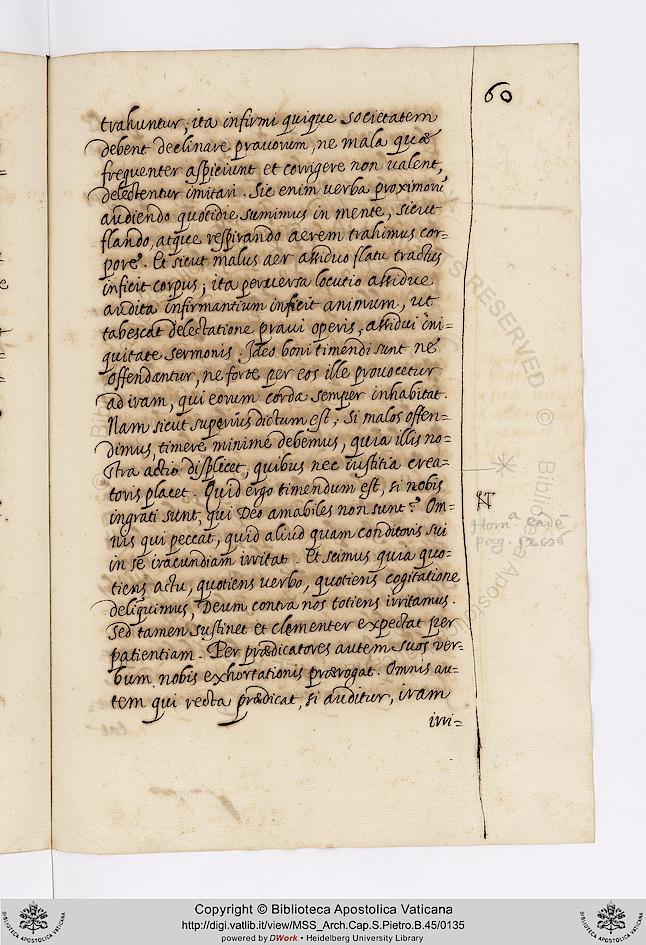 60
trahuntur; ita infirmi quique societatem
debent declinare prauorum, ne mala quæ
frequenter aspiciunt et corrigere non ualent,
delectentur imitari. Sic enim uerba proximorū
audiendo quotidie sumimus in mente, sicut
flando, atque respirando aerem trahimus cor=
pore. Et sicut malus aer assiduo flatu tractus
inficit corpus; ita peruersa locutio assidue
audita infirmantium inficit animum, ut
tabescat delectatione praui operis, assidui ini=
quitate sermonis. Ideo boni timendi sunt ne
offendantur, ne forte per eos ille prouocetur
ad iram, qui eorum corda semper inhabitat.
Nam sicut superius dictum est; si malos offen=
dimus, timere minime debemus, quia illis no=
stra actio displicet, quibus nec iustitia crea=
toris placet. Quid ergo timendum est, si nobis
ingrati sunt, qui Deo amabiles non sunt? Om=
nis qui peccat, quid aliud quam conditoris sui
in se iracundiam irritat. Et scimus quia quo=
tiens actu, quotiens uerbo, quotiens cogitatione
deliquimus, Deum contra nos totiens irritamus.
Sed tamen sustinet et clementer expectat per
patientiam. Per prædicatores autem suos uer=
bum nobis exhortationis prærogat. Omnis au=
tem qui recta prædicat, si auditur, iram
irri=
Hom.a eadē
pag.
Copyright © Biblioteca Apostolica Vaticana
http://digi.vatlib.it/view/MSS_Arch.Cap.S.Pietro.B.45/0135
powered by DWork • Heidelberg University Library